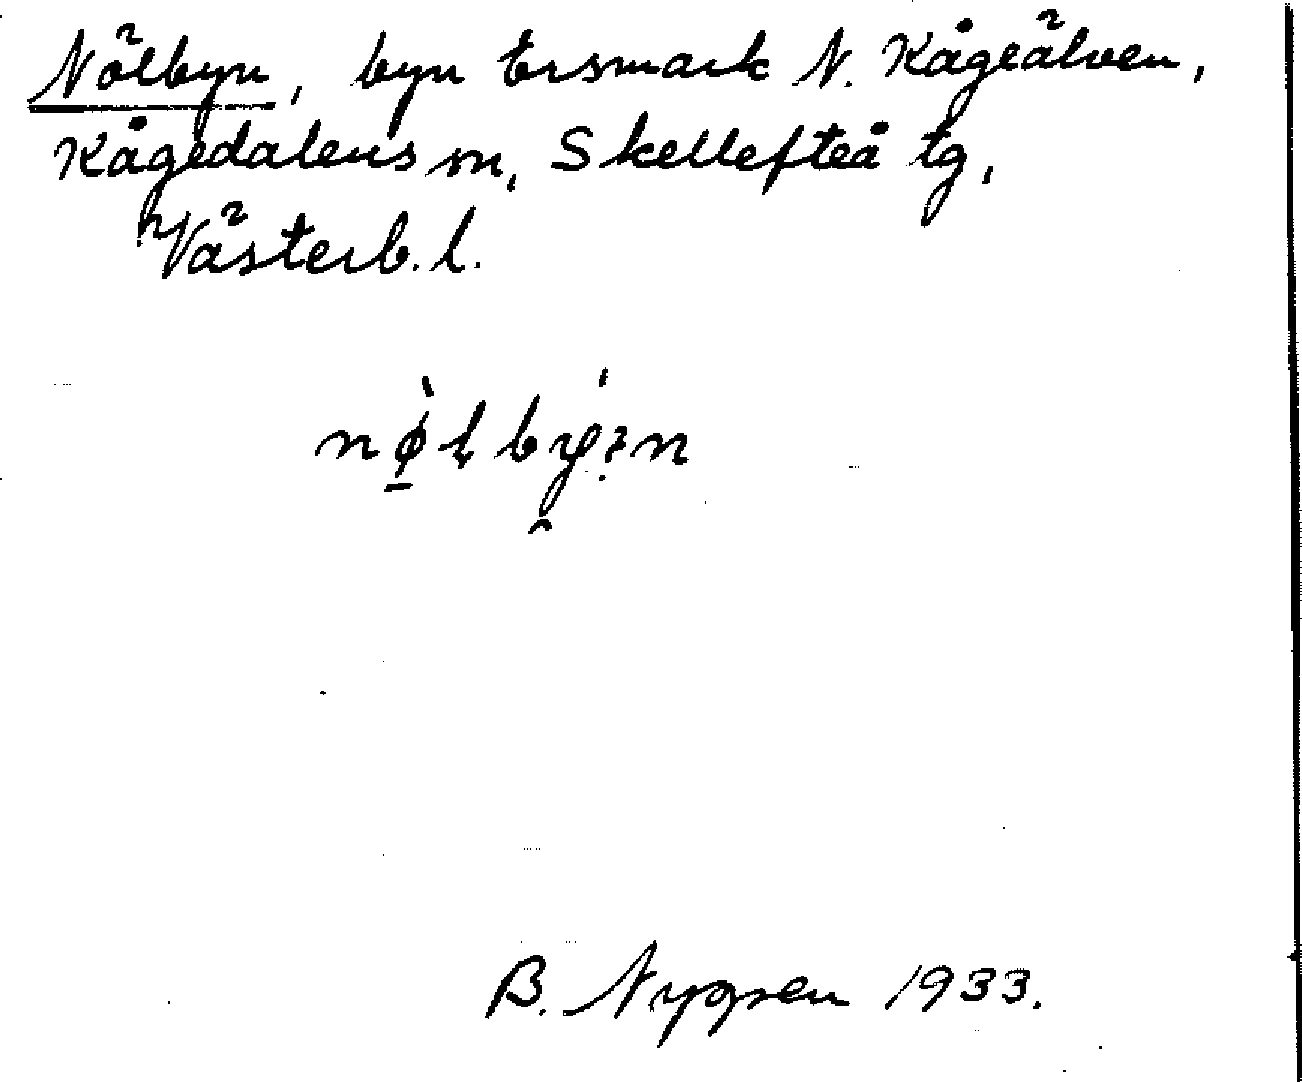 Nölbyn, byn Ersmark N. Kågeälven,
Kågedalens sn, Skellefteå tg,
Västerb. l.
B. Nygren 1933.